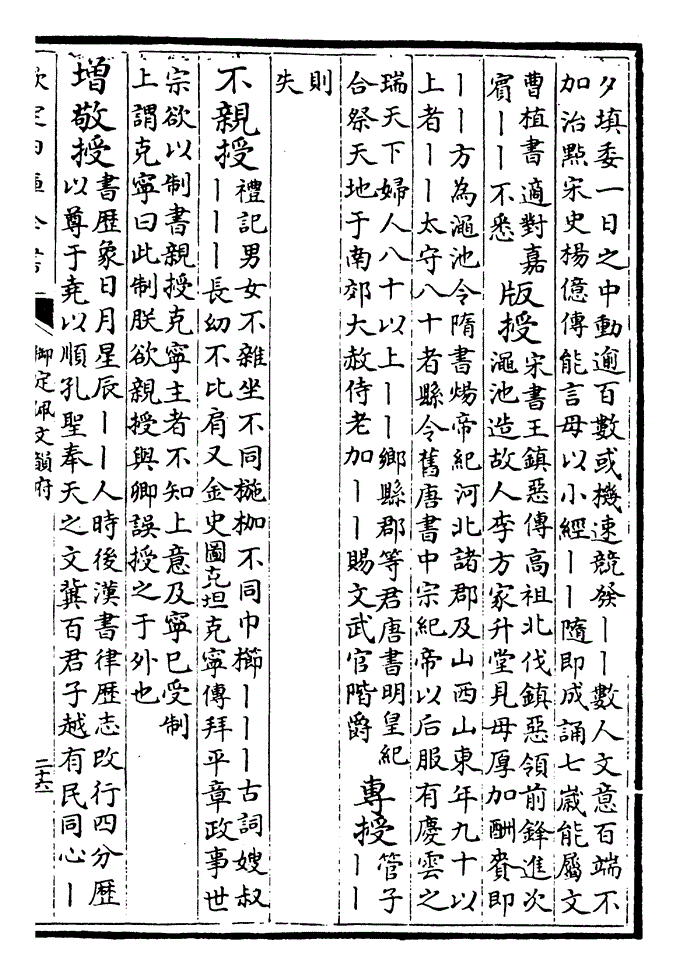 夕填委一日之中動逾百數或機速競發丨丨數人文意百端不
加治㸃宋史楊億傳能言母以小經丨丨隨即成誦七嵗能屬文
曹植書適對嘉
賓丨丨不悉
版授
宋書王鎮惡傳高祖北伐鎮惡領前鋒進次
澠池造故人李方家升堂見母厚加酬賚即
丨丨方為澠池令隋書煬帝紀河北諸郡及山西山東年九十以
上者丨丨太守八十者縣令舊唐書中宗紀帝以后服有慶雲之
瑞天下婦人八十以上丨丨鄉縣郡等君唐書明皇紀
合祭天地于南郊大赦侍老加丨丨賜文武官階爵
專授
管子
丨丨
則
失
不親授
禮記男女不雜坐不同椸枷不同巾櫛丨丨丨古詞嫂叔
丨丨丨長幼不比肩又金史圖克坦克寧傳拜平章政事世
宗欲以制書親授克寧主者不知上意及寧巳受制
上謂克寧曰此制朕欲親授與卿誤授之于外也
增敬授
書歴象日月星辰丨丨人時後漢書律歴志改行四分歴
以尊于堯以順孔聖奉天之文冀百君子越有民同心丨
欽定四庫全書
御定佩文韻府
二十六